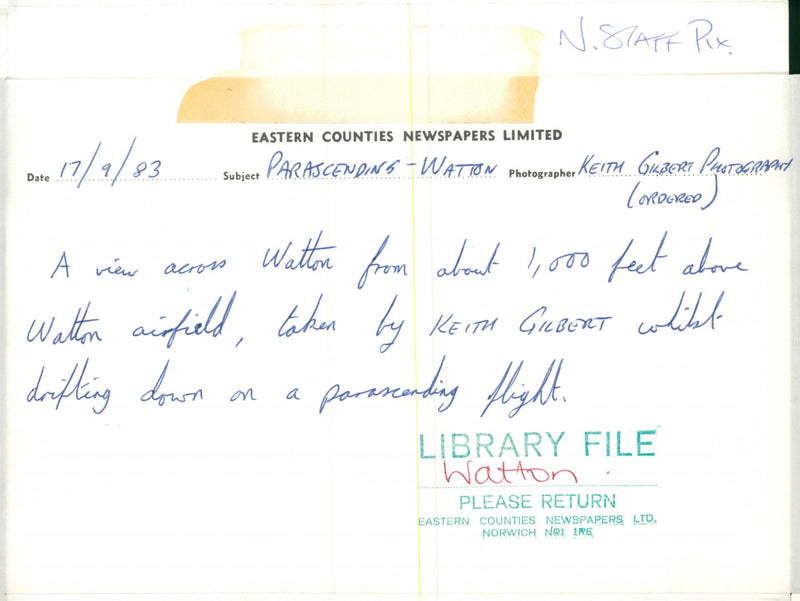 N. STAFF PIX.
EASTERN COUNTIES NEWSPAPERS LIMITED
Date 17/9/83 Subject PARASCENDING - WATTON Photographer KEITH GILBERT PHOTOGRAPHY
(ORDERED)
A view across Watton from about 1,000 feet above
Watton airfield, taken by KEITH GILBERT whilst
drifting down on a parascending flight.
LIBRARY FILE
Watton.
PLEASE RETURN
EASTERN COUNTIES NEWSPAPERS LTD.
NORWICH NR1 1RE